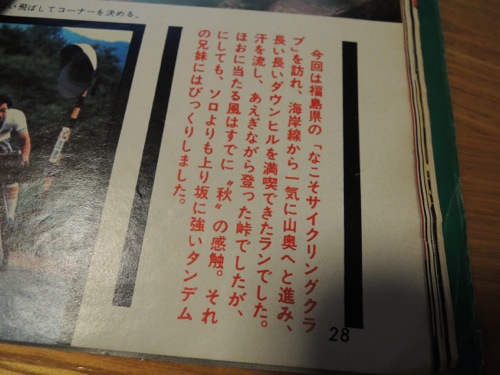 い飛ばしてコーナーを決める。
今回は福島県の「なこそサイクリングクラ
ブ」を訪れ、海岸線から一気に山奥へと進み、
長い長いダウンヒルを満喫できたランでした。
汗を流し、あえぎながら登った峠でしたが、
ほおに当たる風はすでに〝秋〟の感触。それ
にしても、ソロよりも上り坂に強いタンデム
の兄妹にはびっくりしました。
28